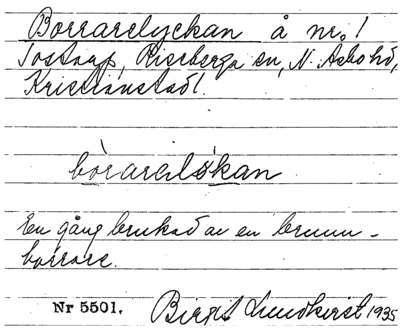 Borrarelyckan å nr. 1
Tostarp, Riseberga sn, N. Åsbo hd,
Kristianstad l.
bòrarelỳkan
En gång brukad av en brunn-
borrare.
Nr 5501. Birgit Lundkvist 1935